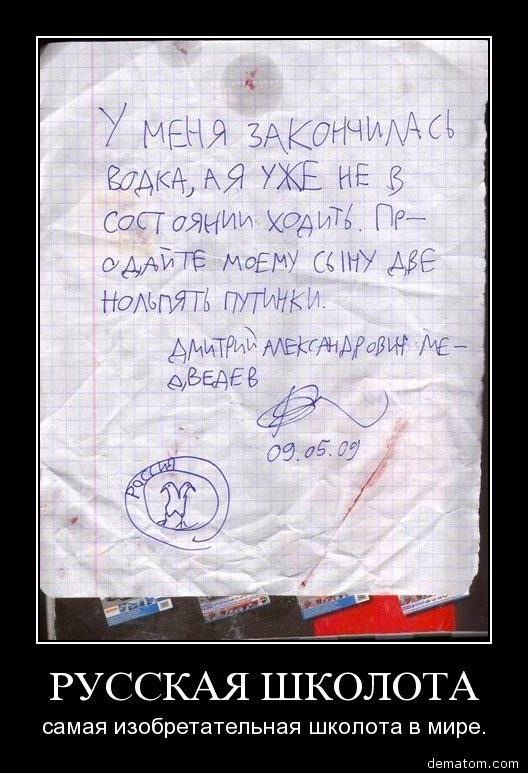 У МЕНЯ ЗАКОНЧИЛАСЬ
ВОДКА, А Я УЖЕ НЕ В
СОСТОЯНИИ ХОДИТЬ. ПР-
ОДАЙТЕ МОЕМУ СЫНУ ДВЕ
НОЛЬПЯТЬ ПУТИНКИ.
ДМИТРИЙ АЛЕКСАНДРОВИЧ МЕ-
ДВЕДЕВ
09.05.09
РОССИЯ
РУССКАЯ ШКОЛОТА
самая изобретательная школота в мире.
dematom.com